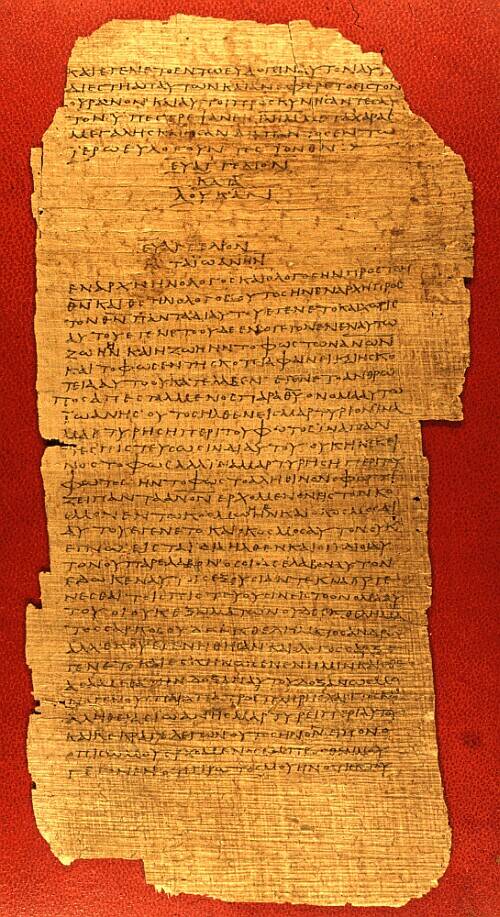 ΚΑΙΕΓΕΝΕΤΟΕΝΤΩΕΥΛΟΓΕΙΝΑΥΤΟΝΑΥ
ΔΙΕϹΤΗΑΠΑΥΤΩΝΚΑΙΑΝΕΦΕΡΕΤΟΕΙϹΤΟΝ
ΟΥΡΑΝΟΝΚΑΙΑΥΤΟΙΠΡΟϹΚΥΝΗϹΑΝΤΕϹΑΥ
ΤΟΝΥΠΕϹΤΡΕΨΑΝ
ΜΕΓΑΛΗϹΚΑΙΗϹΑΝΔΙΑΠΑΝΤΟϹΕΝΤΩ
ΪΕΡΩΕΥΛΟΓΟΥΝΤΕϹΤΟΝΘΝ
ΕΥΑΓΓΕΛΙΟΝ
ΚΑΤΑ
ΛΟΥΚΑΝ
ΕΥΑΓΓΕΛΙΟΝ
ΚΑΤΑΙΩΑΝΗΝ
ΕΝΑΡΧΗΗΝΟΛΟΓΟϹΚΑΙΟΛΟΓΟϹΗΝΠΡΟϹΤΟΝ
ΘΝΚΑΙΘϹΗΝΟΛΟΓΟϹΟΥΤΟϹΗΝΕΝΑΡΧΗΠΡΟϹ
ΤΟΝΘΝΠΑΝΤΑΔΙΑΥΤΟΥΕΓΕΝΕΤΟΚΑΙΧΩΡΙϹ
ΑΥΤΟΥΕΓΕΝΕΤΟΟΥΔΕΕΝΟΓΕΓΟΝΕΝΕΝΑΥΤΩ
ΖΩΗΗΝΚΑΙΗΖΩΗΗΝΤΟΦΩϹΤΩΝΑΝΩΝ
ΚΑΙΤΟΦΩϹΕΝΤΗϹΚΟΤΕΙΑΦΑΙΝΕΙΚΑΙΗϹΚΟ
ΤΕΙΑΑΥΤΟΟΥΚΑΤΕΛΑΒΕΝΕΓΕΝΕΤΟΑΝΘΡΩ
ΠΟϹΑΠΕϹΤΑΛΜΕΝΟϹΠΑΡΑΘΥΟΝΟΜΑΑΥΤΩ
ΪΩΑΝΗϹΟΥΤΟϹΗΛΘΕΝΕΙϹΜΑΡΤΥΡΙΟΝΙΝΑ
ΜΑΡΤΥΡΗϹΗΠΕΡΙΤΟΥΦΩΤΟϹΙΝΑΠΑΝ
ΤΕϹΠΙϹΤΕΥϹΩϹΙΝΔΙΑΥΤΟΥΟΥΚΗΝΕΚΕΙ
ΝΟϹΤΟΦΩϹΑΛΛΙΝΑΜΑΡΤΥΡΗϹΗΠΕΡΙΤΟΥ
ΦΩΤΟϹΗΝΤΟΦΩϹΤΟΑΛΗΘΙΝΟΝΟΦΩΤΙ
ΖΕΙΠΑΝΤΑΑΝΟΝΕΡΧΟΜΕΝΟΝΕΙϹΤΟΝΚΟ
ϹΜΟΝΕΝΤΩΚΟϹΜΩΗΝΚΑΙΟΚΟϹΜΟϹΔΙ
ΑΥΤΟΥΕΓΕΝΕΤΟΚΑΙΟΚΟϹΜΟϹΑΥΤΟΝΟΥΚ
ΕΓΝΩΕΙϹΤΑΙΔΙΑΗΛΘΕΝΚΑΙΟΙΙΔΙΟΙΑΥ
ΤΟΝΟΥΠΑΡΕΛΑΒΟΝΟϹΟΙΔΕΕΛΑΒΟΝΑΥΤΟΝ
ΕΔΩΚΕΝΑΥΤΟΙϹΕΞΟΥϹΙΑΝΤΕΚΝΑΘΥΓΕ
ΝΕϹΘΑΙΤΟΙϹΠΙϹΤΕΥΟΥϹΙΝΕΙϹΤΟΟΝΟΜΑΑΥ
ΤΟΥΟΙΟΥΚΕΞΑΙΜΑΤΩΝΟΥΔΕΕΚΘΕΛΗΜΑ
ΤΟϹϹΑΡΚΟϹΟΥΔΕΕΚΘΕΛΗΜΑΤΟϹΑΝΔΡΟϹ
ΑΛΛΕΚΘΥΕΓΕΝΝΗΘΗϹΑΝΚΑΙΟΛΟΓΟϹϹΑΡΞΕ
ΓΕΝΕΤΟΚΑΙΕϹΚΗΝΩϹΕΝΕΝΗΜΙΝΚΑΙΕΘΕ
ΑϹΑΜΕΘΑΤΗΝΔΟΞΑΝΑΥΤΟΥΔΟΞΑΝΩϹΜΟ
ΝΟΓΕΝΟΥϹΠΑΡΑΠΑΤΡΟϹΠΛΗΡΗϹΧΑΡΙΤΟϹΚΑΙ
ΑΛΗΘΕΙΑϹΙΩΑΝΗϹΜΑΡΤΥΡΕΙΠΕΡΙΑΥΤΟΥ
ΚΑΙΚΕΚΡΑΓΕΛΕΓΩΝΟΥΤΟϹΗΝΟΝΕΙΠΟΝΟ
ΟΠΙϹΩΜΟΥΕΡΧΟΜΕΝΟϹΕΜΠΡΟϹΘΕΝΜΟΥ
ΓΕΓΟΝΕΝΟΤΙΠΡΩΤΟϹΜΟΥΗΝΟΤΙΕΚΤΟΥ